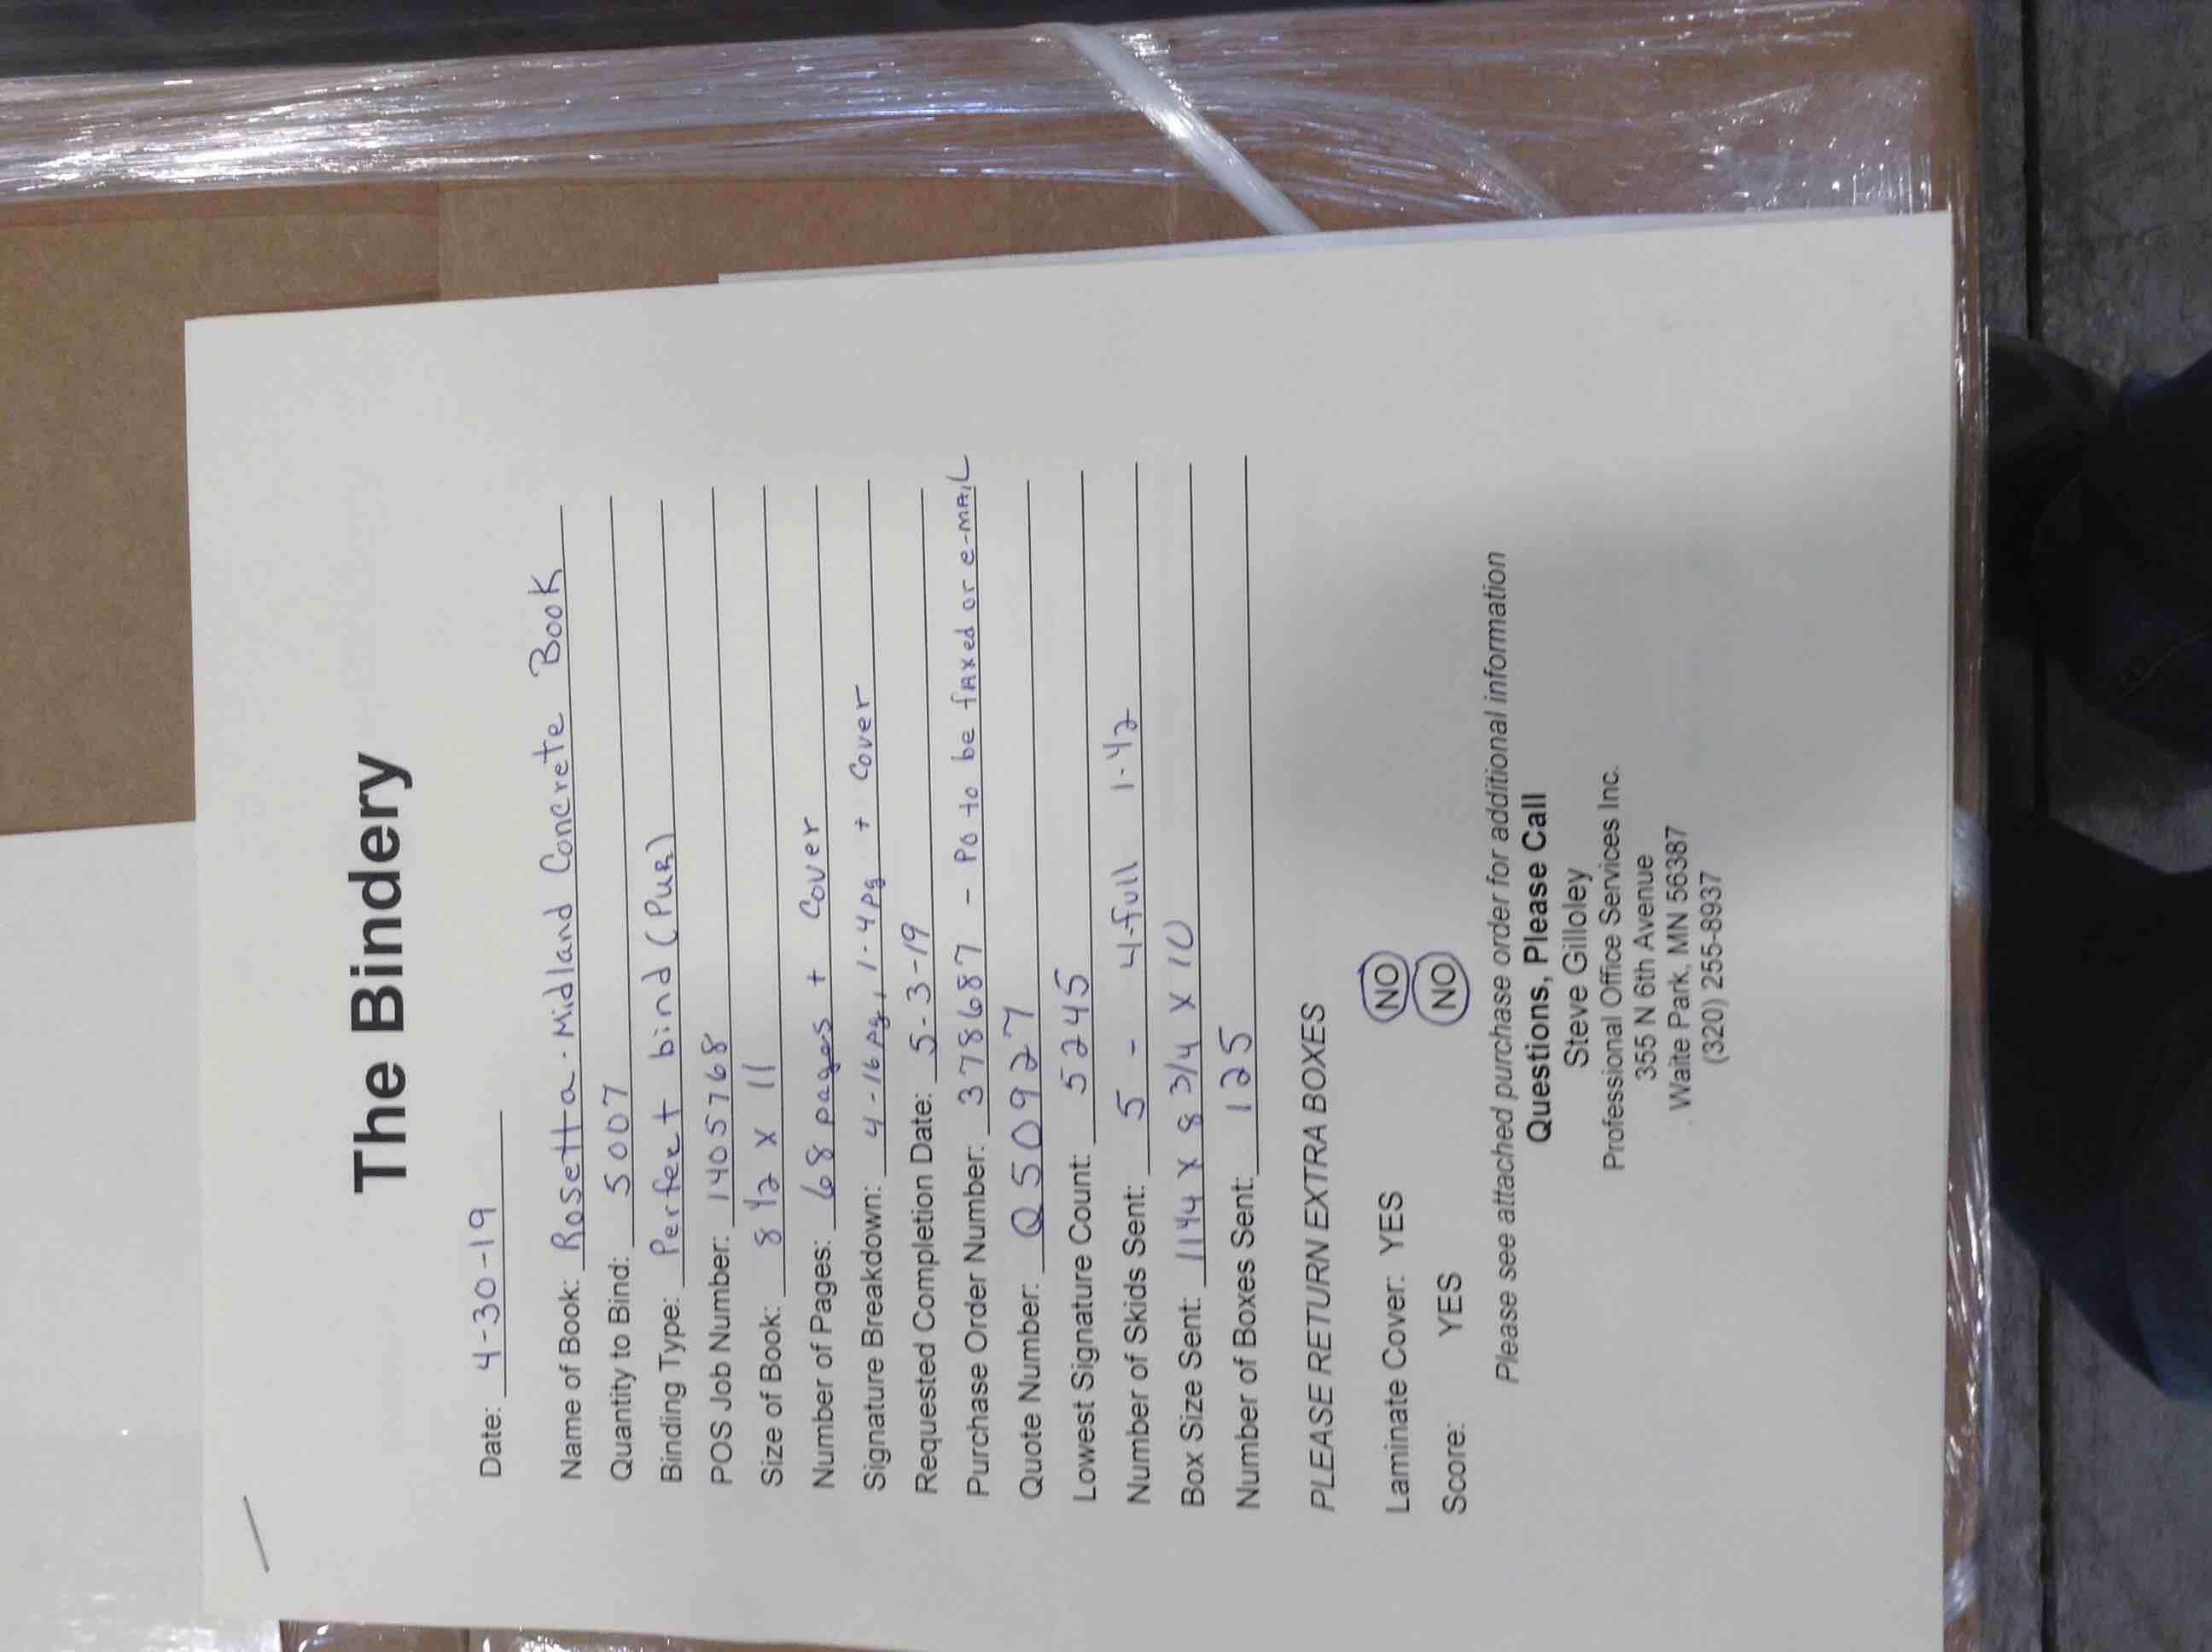 The Bindery
Date: 4-30-19
Name of Book: Rosetta - Midland Concrete Book
Quantity to Bind: 5007
Binding Type: Perfect bind (PUR)
POS Job Number: 1405768
Size of Book: 8 1/2 x 11
Number of Pages: 68 pages + Cover
Signature Breakdown: 4-16pg, 1-4pg + Cover
Requested Completion Date: 5-3-19
Purchase Order Number: 378687 - PO to be fAxed or e-mAiL
Quote Number: Q50927
Lowest Signature Count: 5245
Number of Skids Sent: 5 - 4-full 1-1/2
Box Size Sent: 11 1/4 x 8 3/4 x 10
Number of Boxes Sent: 125
PLEASE RETURN EXTRA BOXES
Laminate Cover: YES NO
Score: YES NO
Please see attached purchase order for additional information
Questions, Please Call
Steve Gilloley
Professional Office Services Inc.
355 N 6th Avenue
Waite Park, MN 56387
(320) 255-8937